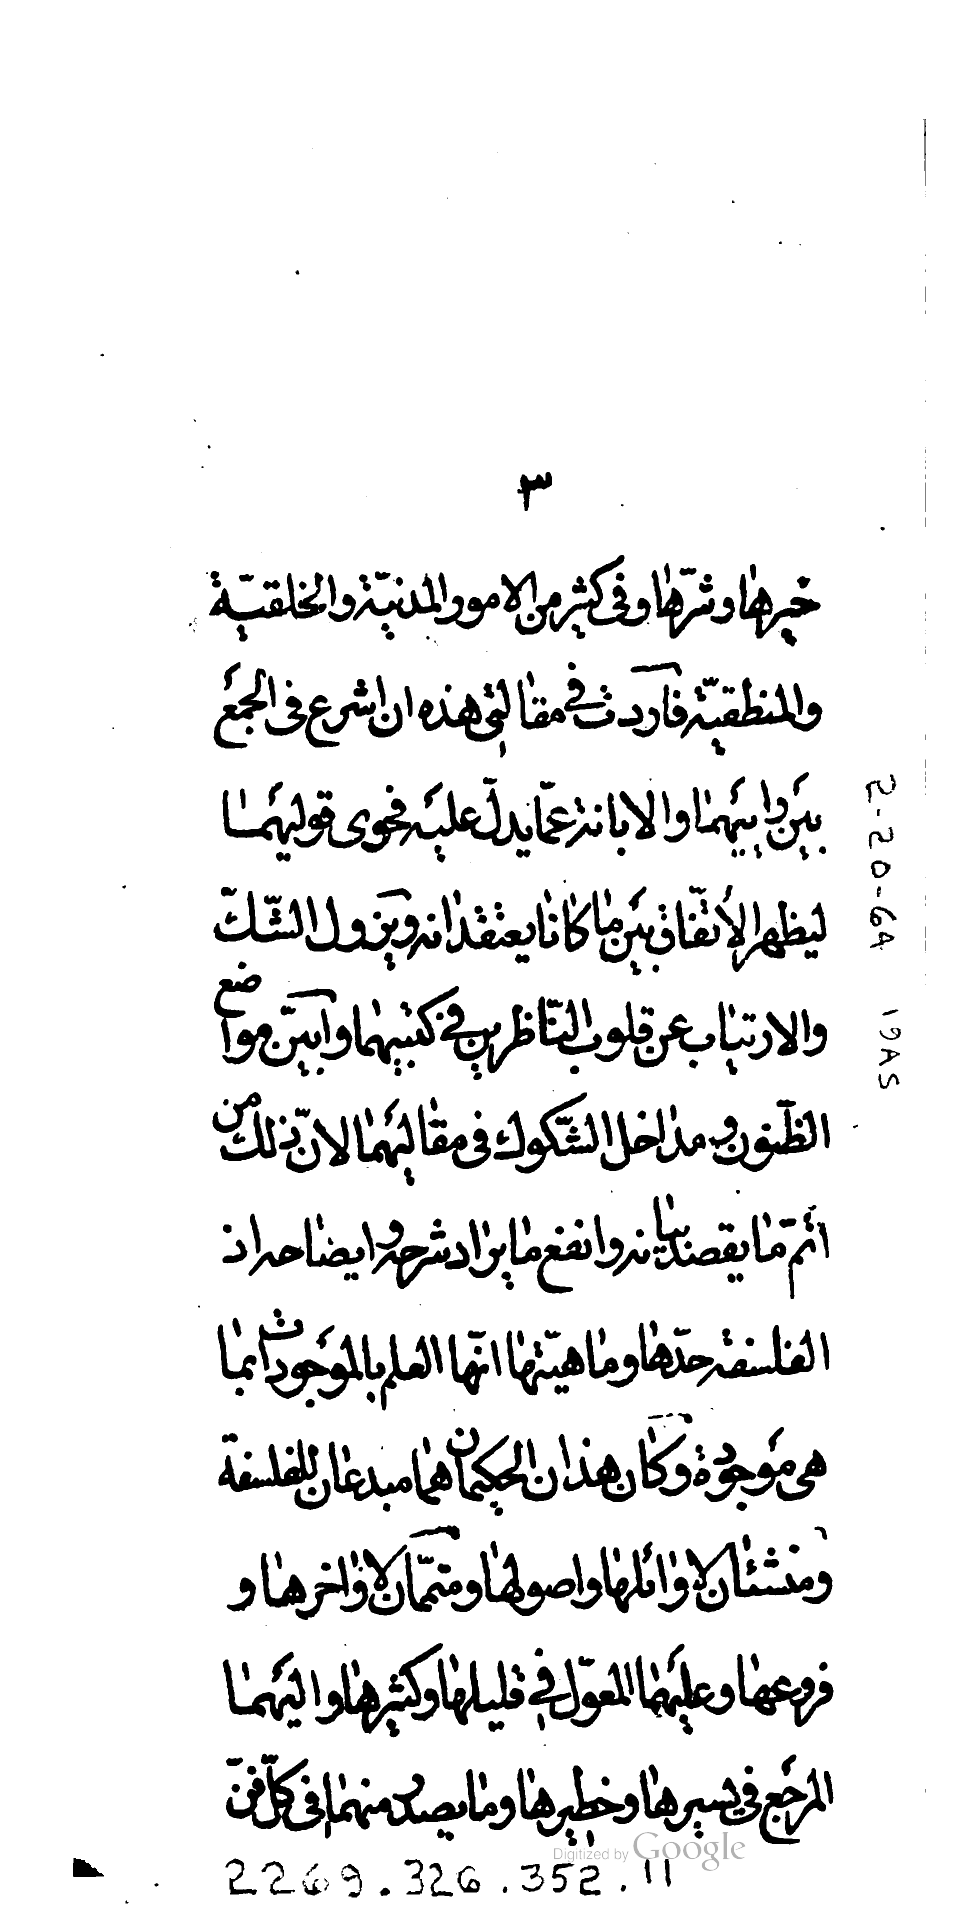 ٣
خيرها وشرّها وفى كثير من الامور المدنيّة والخلقيّة
والمنطقيّة فاردت فى مقالتى هذه ان اشرع فى الجمع
بين رايَيهما والابانة عمّا يدلّ عليه فحوى قوليهما
ليظهر الاتّفاق بين ما كانا يعتقدانه ويزول الشّكّ
والارتياب عن قلوب النّاظرين فى كتبيهما وابيّن مواضع
الظّنون و مداخل الشّكوك فى مقاليهما لانّ ذلك من
اتمّ ما يقصد بيانه وانفع ما يراد شرحه و ايضاحه اذ
الفلسفة حدّها وماهيّتها انّها العلم بالموجودات بما
هى موجودة وكان هذان الحكيمان هما مبدعان للفلسفة
ومنشئان لاوائلها واصولها ومتمّمان لاواخرها و
فروعها وعليهما المعوّل فى قليلها وكثيرها واليهما
المرجع فى يسيرها وخطيرها وما يصدر منهما فى كلّ فنّ
2-20-64 19AS
Digitized by Google
2269.326.352.11